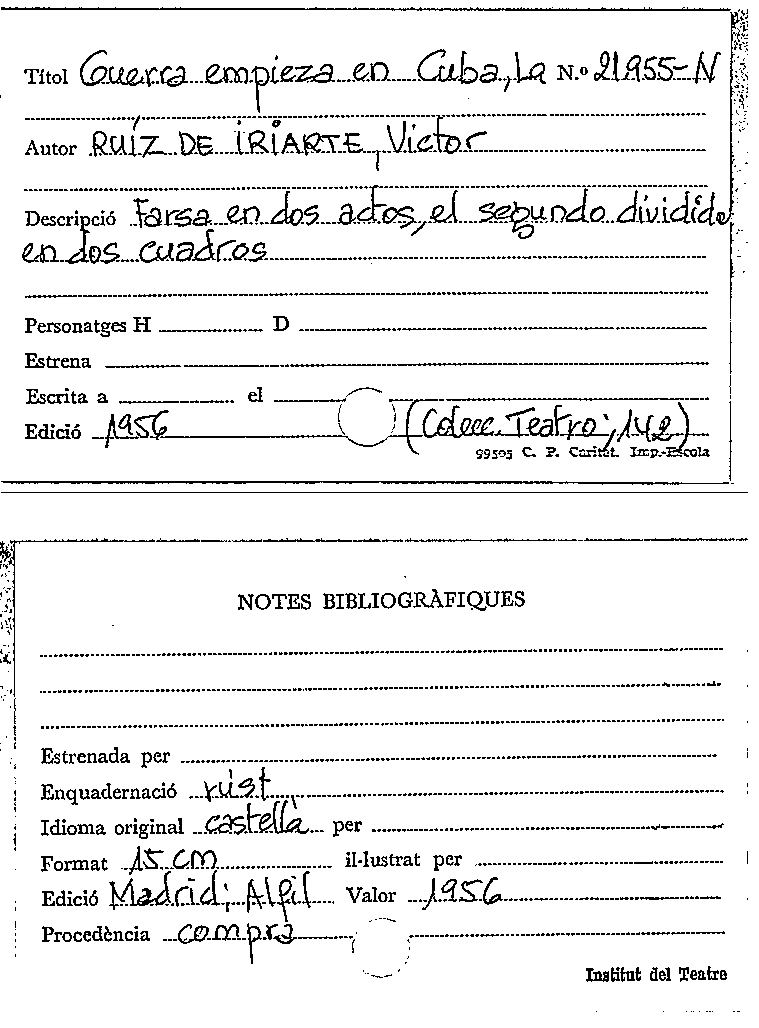 Títol Guerra empieza en Cuba, La N.º 21955-N
Autor RUÍZ DE IRIARTE, Victor
Descripció Farsa en dos actos, el segundo dividido
en dos cuadros
Personatges H D
Estrena
Escrita a el
Edició 1956 (Colecc. Teatro; 142)
99595 C. P. Caritat. Imp.-Escola
NOTES BIBLIOGRÀFIQUES
Estrenada per
Enquadernació rúst
Idioma original castellà per
Format 15 cm il·lustrat per
Edició Madrid; Alfil Valor 1956
Procedència compra
Institut del Teatre